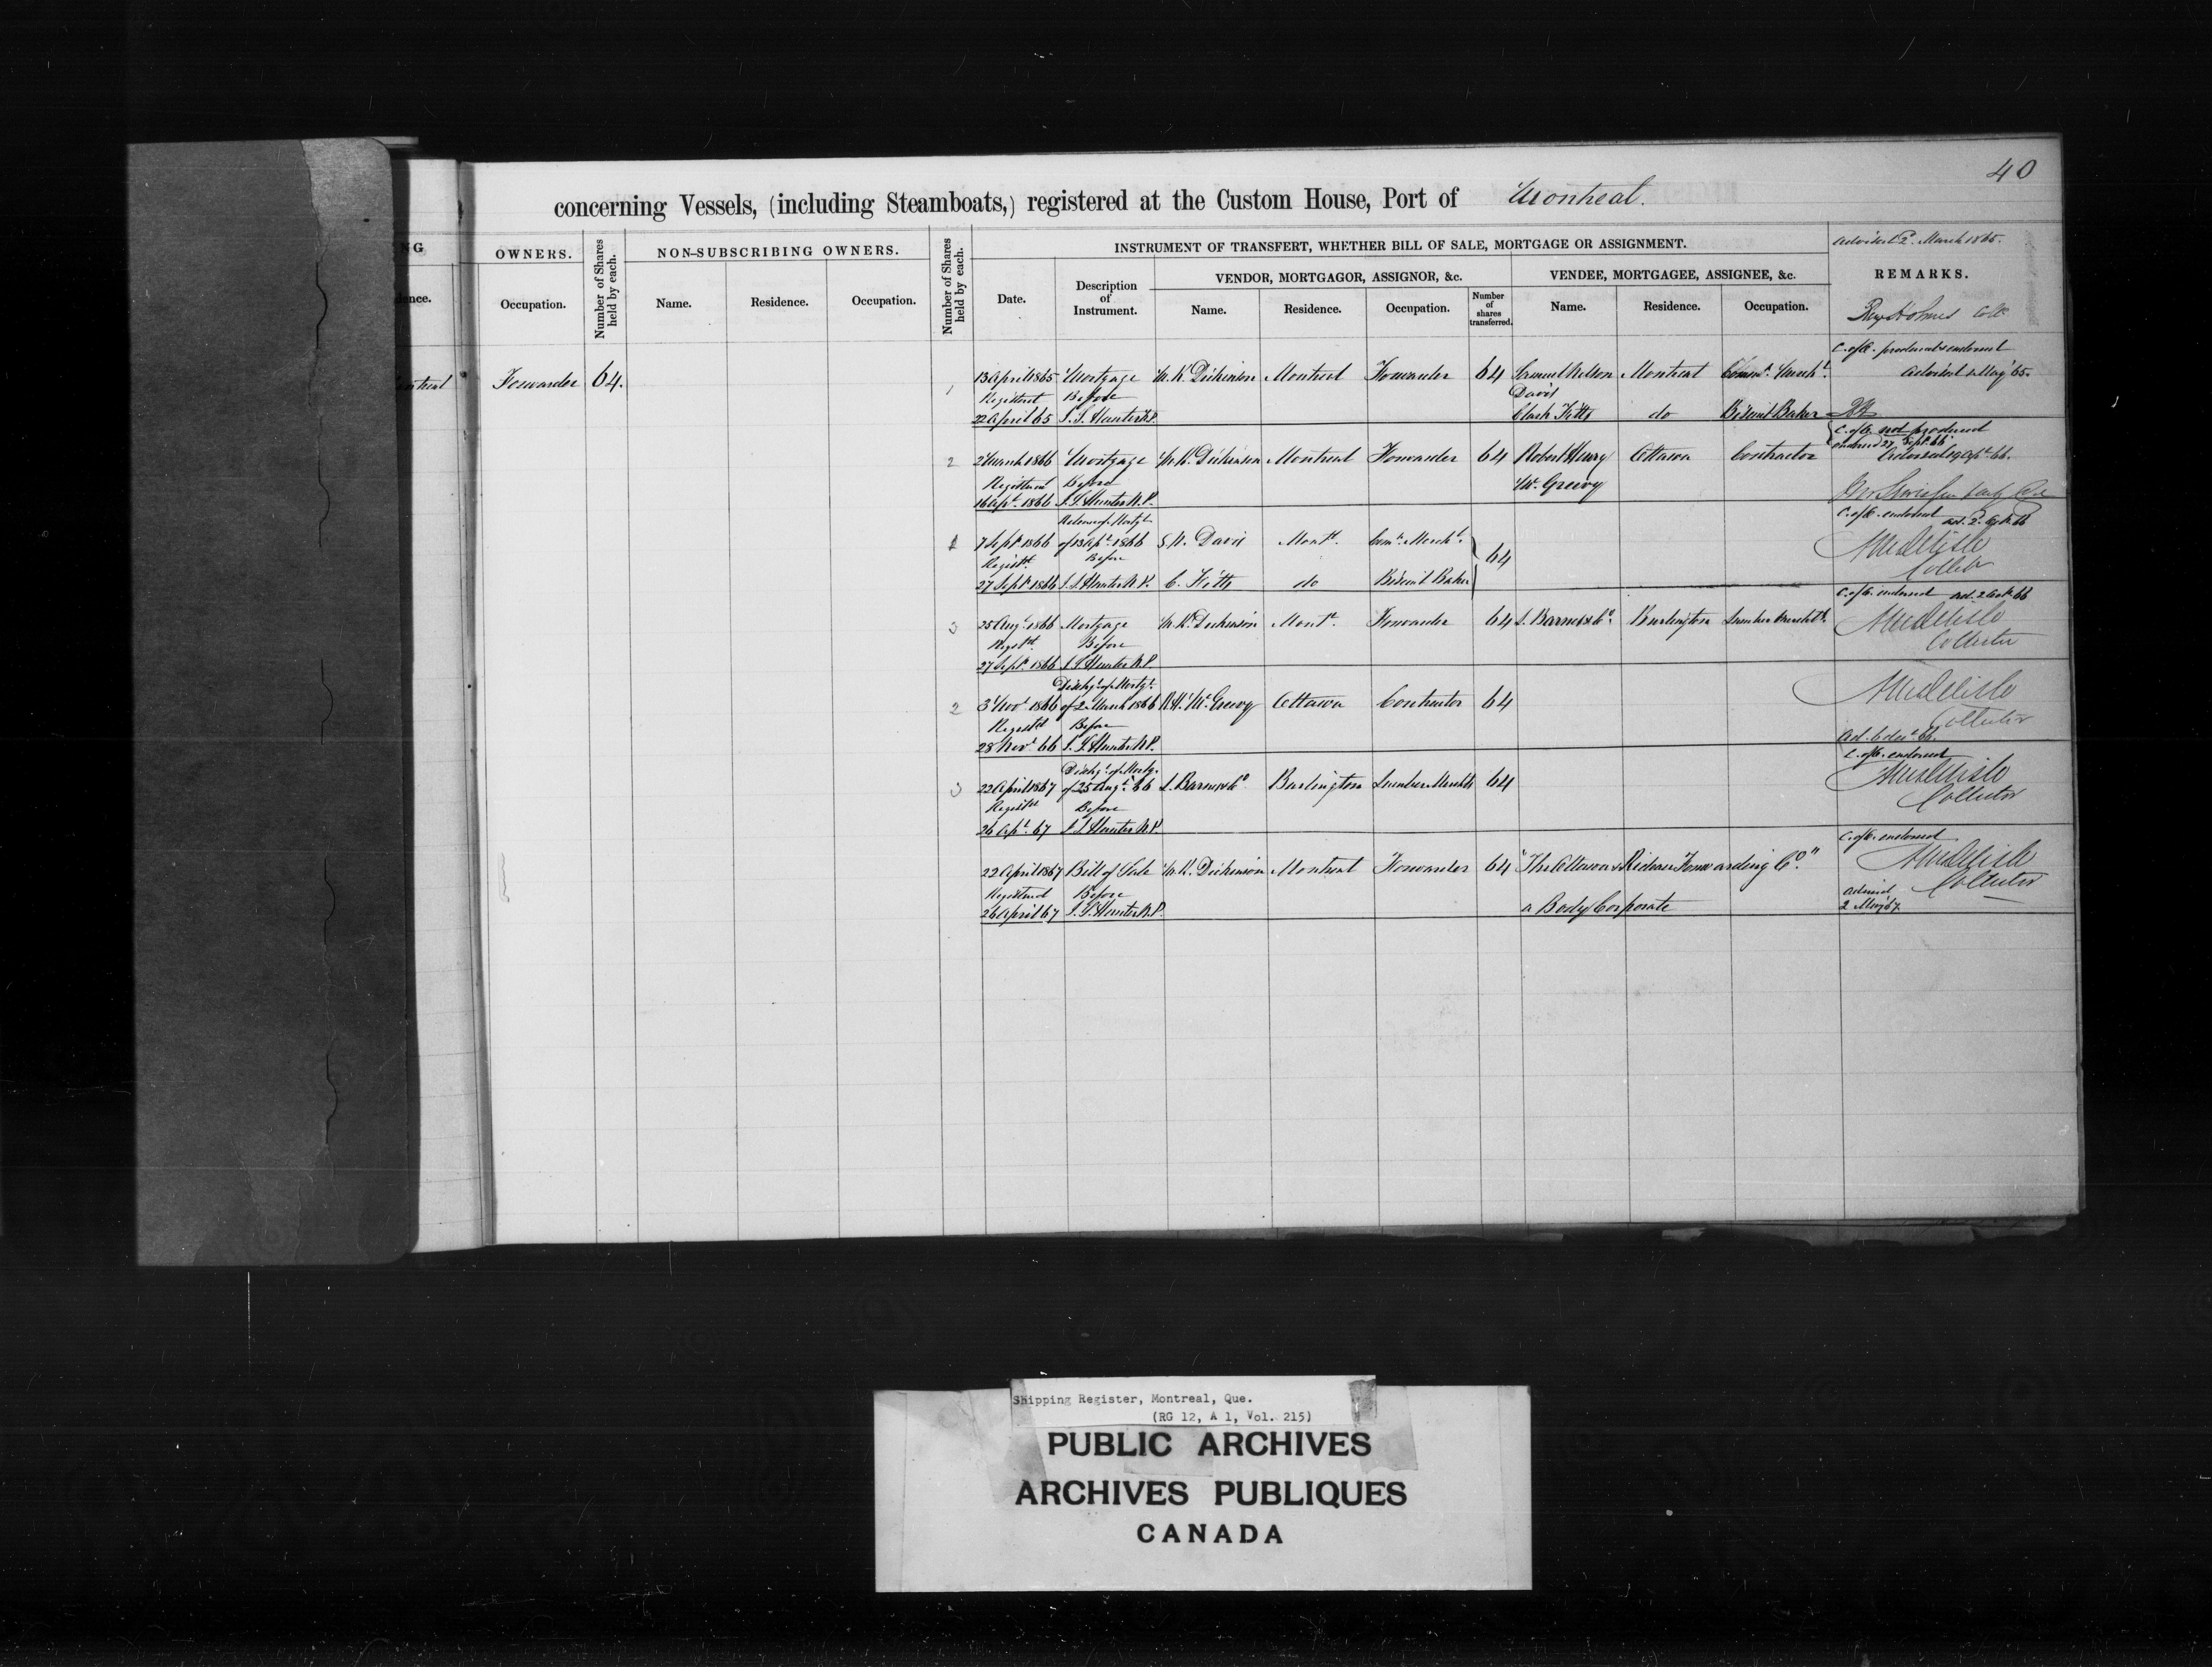 40
concerning Vessels, (including Steamboats,) registered at the Custom House, Port of Montreal.
NG
dence.
OWNERS.
Occupation.
Number of Shares held by each.
NON-SUBSCRIBING OWNERS.
Name.
Residence.
Occupation.
Number of Shares held by each.
INSTRUMENT OF TRANSFERT, WHETHER BILL OF SALE, MORTGAGE OR ASSIGNMENT.
Date.
Description of Instrument.
VENDOR, MORTGAGOR, ASSIGNOR, &c.
Name.
Residence.
Occupation.
Number of shares transferred.
VENDEE, MORTGAGEE, ASSIGNEE, &c.
Name.
Residence.
Occupation.
Advised 2. March 1865.
REMARKS.
Benj Holmes Collr
ontreal Forwarder 64.
C. of O. produced & endorsed
1 13 April 1865 Mortgage M. K. Dickinson Montreal Forwarder 64 Samuel Nelson Montreal Comm. Mercht. Advised 2 May 65.
Registered Before Davis
22 April 65 J. S. Hunter N.P. Clark Fitts do Biscuit Baker BH
C. of O. not produced
endorsed 27 Sept. 66
2 2 March 1866 Mortgage M. K. Dickinson Montreal Forwarder 64 Robert Henry Ottawa Contractor Advised 19 Apl. 66.
Registered Before McGreevy
16 Apl. 1866 J. S. Hunter N.P.
Release of Mortge C. of O. endorsed ad. 2. Oct. 66
1 7 Sept. 1866 of 13 Apl. 1866 S. N. Davis Montl. Comn. Mercht. 64
Registd. Before Collector
27 Sept. 1866 J. S. Hunter N.P. C. Fitts do Biscuit Baker
C. of O. endorsed ad. 2 Oct. 66
3 25 Aug. 1866 Mortgage M. K. Dickinson Montl. Forwarder 64 L. Barnes & Co. Burlington Lumber Merchts.
Registd. Before Collector
27 Sept. 1866 J. S. Hunter N.P.
Dischge. of Mortge.
2 3 Nov. 1866 of 2 March 1866 R. H. McGreevy Ottawa Contractor 64
Registd Before Collector
28 Nov. 66 J. S. Hunter N.P. Ad. 6 decr. 66.
Dischge. of Mortge. C. of O. endorsed
3 22 April 1867 of 25 Aug. 66 L. Barnes & Co. Burlington Lumber Merchts 64
Registd Before Collector
26 Apl. 67 J. S. Hunter N.P.
C. of O. endorsed
22 April 1867 Bill of Sale M. K. Dickinson Montreal Forwarder 64 "The Ottawa & Rideau Forwarding Co."
Registered Before Collector
26 April 67 J. S. Hunter N.P. a Body Corporate Advised 2 May 67.
Shipping Register, Montreal, Que.
(RG 12, A 1, Vol. 215)
PUBLIC ARCHIVES
ARCHIVES PUBLIQUES
CANADA